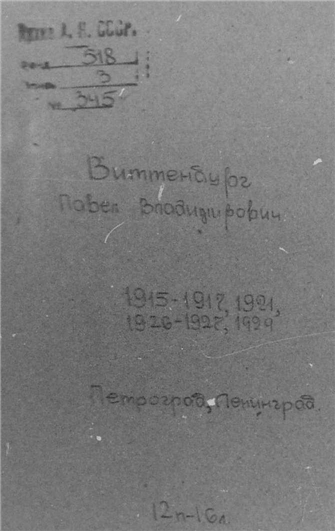 Архив А. Н. СССР.
фонд 518
опись 3
№ 345
Виттенбург
Павел Владимирович
1915-1917, 1921,
1926-1927, 1929
Петроград, Ленинград.
12п-16л